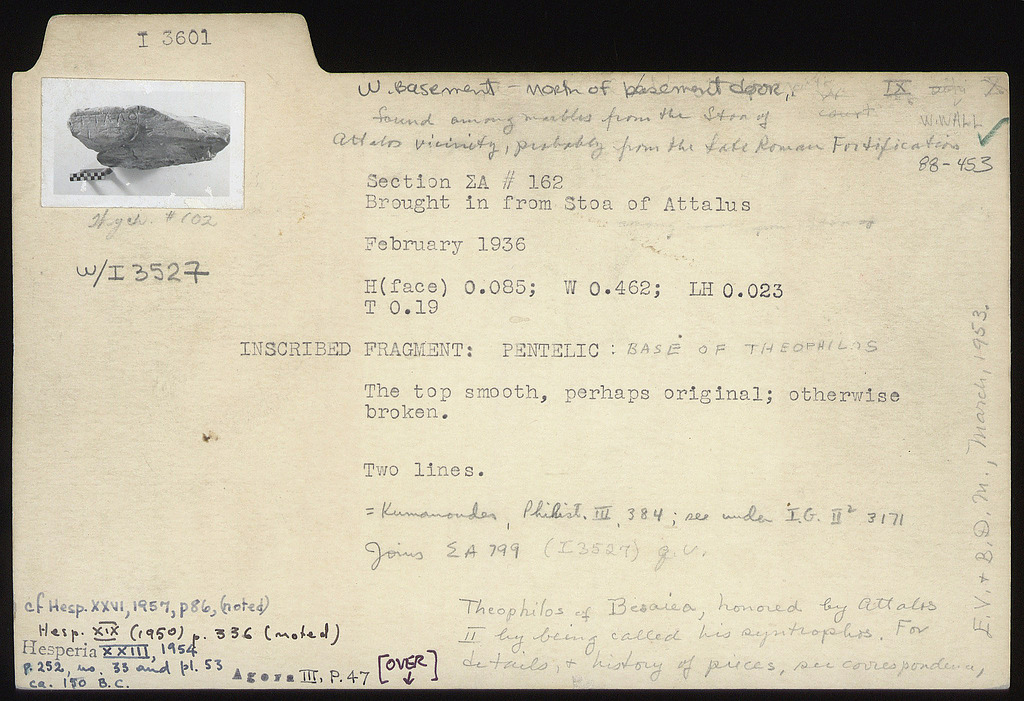 I 3601
W. Basement - North of basement door,
IX
found among marbles from the Stoa of
court
W. WALL
Attalos vicinity, probably from the Late Roman Fortification
88-453
Section ΣA # 162
Brought in from Stoa of Attalus
# 102
February 1936
w/I 3527
H(face) 0.085; W 0.462; LH 0.023
T 0.19
INSCRIBED FRAGMENT: PENTELIC : BASE OF THEOPHILOS
The top smooth, perhaps original; otherwise
broken.
Two lines.
= Kumanoudes, Philist. III, 384; see under I.G. II² 3171
Joins ΣA 799 (I 3527) q.v.
E.V. + B.D.M., March, 1953.
Theophilos of Besaiea, honored by Attalos
II by being called his syntrophos. For
details, + history of pieces, see correspondence,
cf Hesp. XXVI, 1957, p86, (noted)
Hesp. XIX (1950) p. 336 (noted)
Hesperia XXIII, 1954
p. 252, no. 33 and pl. 53
ca. 150 B.C.
Agora III, P. 47 [OVER]